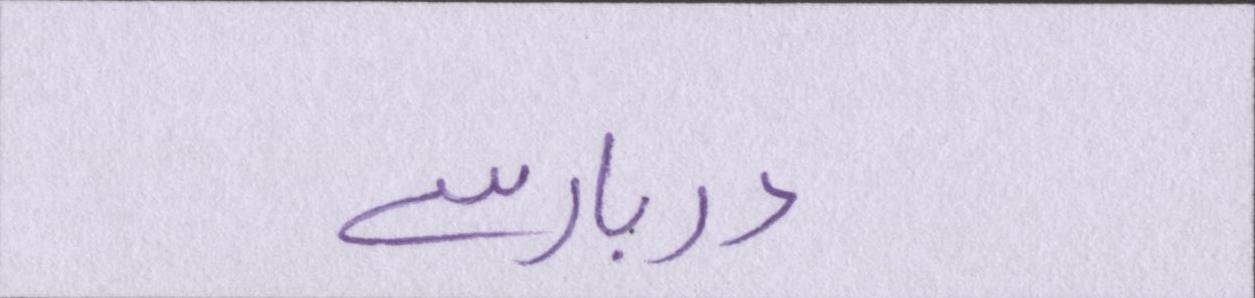 دربار سے